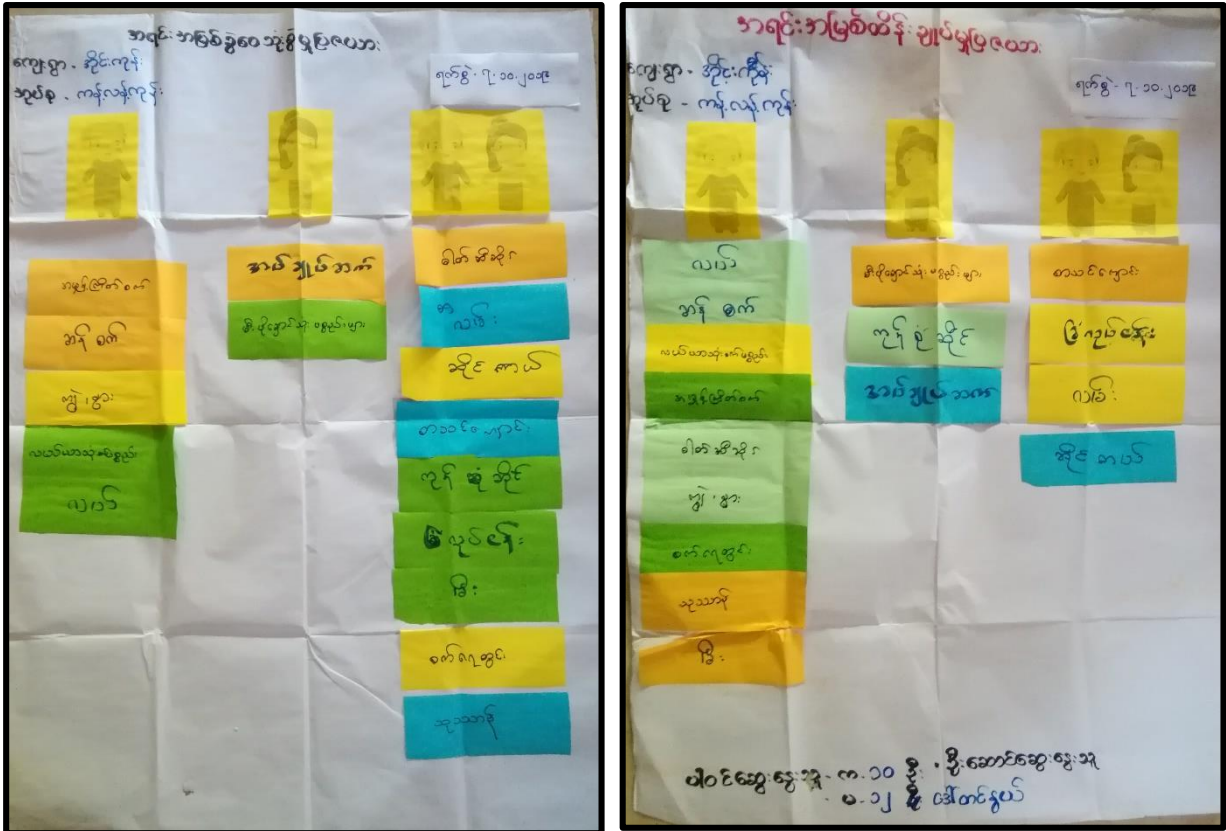 အရင်းအမြစ်ခွဲဝေသုံးစွဲမှုပြဇယား
ကျေးရွာ - အိုင်းကုန်း
အုပ်စု - ကန့်လန့်ကုန်း
ရက်စွဲ - ၇.၁၀.၂၀၁၉
အမှုန့်ကြိတ်စက်
ဆန်စက်
ကျွဲ၊နွား
လယ်ယာသုံးပစ္စည်း
လယ်
အပ်ချုပ်စက်
မီးဖိုချောင်သုံးပစ္စည်းများ
ဓါတ်ဆီဆိုင်
လမ်း
ဆိုင်ကယ်
စာသင်ကျောင်း
ကုန်စုံဆိုင်
ခြံလုပ်ငန်း
ခြံ
စက်ရေတွင်း
သုဿာန်
အရင်းအမြစ်ထိန်းချုပ်မှုပြဇယား
ကျေးရွာ - အိုင်းကုန်း
အုပ်စု - ကန့်လန့်ကုန်း
ရက်စွဲ - ၇.၁၀.၂၀၁၉
လယ်
ဆန်စက်
လယ်ယာသုံးစက်ပစ္စည်း
အမှုန့်ကြိတ်စက်
ဓါတ်ဆီဆိုင်
ကျွဲ၊နွား
စက်ရေတွင်း
သုဿာန်
ခြံ
မီးဖိုချောင်သုံးပစ္စည်းများ
ကုန်စုံဆိုင်
အပ်ချုပ်စက်
စာသင်ကျောင်း
ခြံလုပ်ငန်း
လမ်း
ဆိုင်ကယ်
ပါဝင်ဆွေးနွေးသူ - ကျ - ၁၀ ဦး - ဦးဆောင်ဆွေးနွေးသူ
မ - ၁၂ ဦး ဒေါ်တင်နွယ်